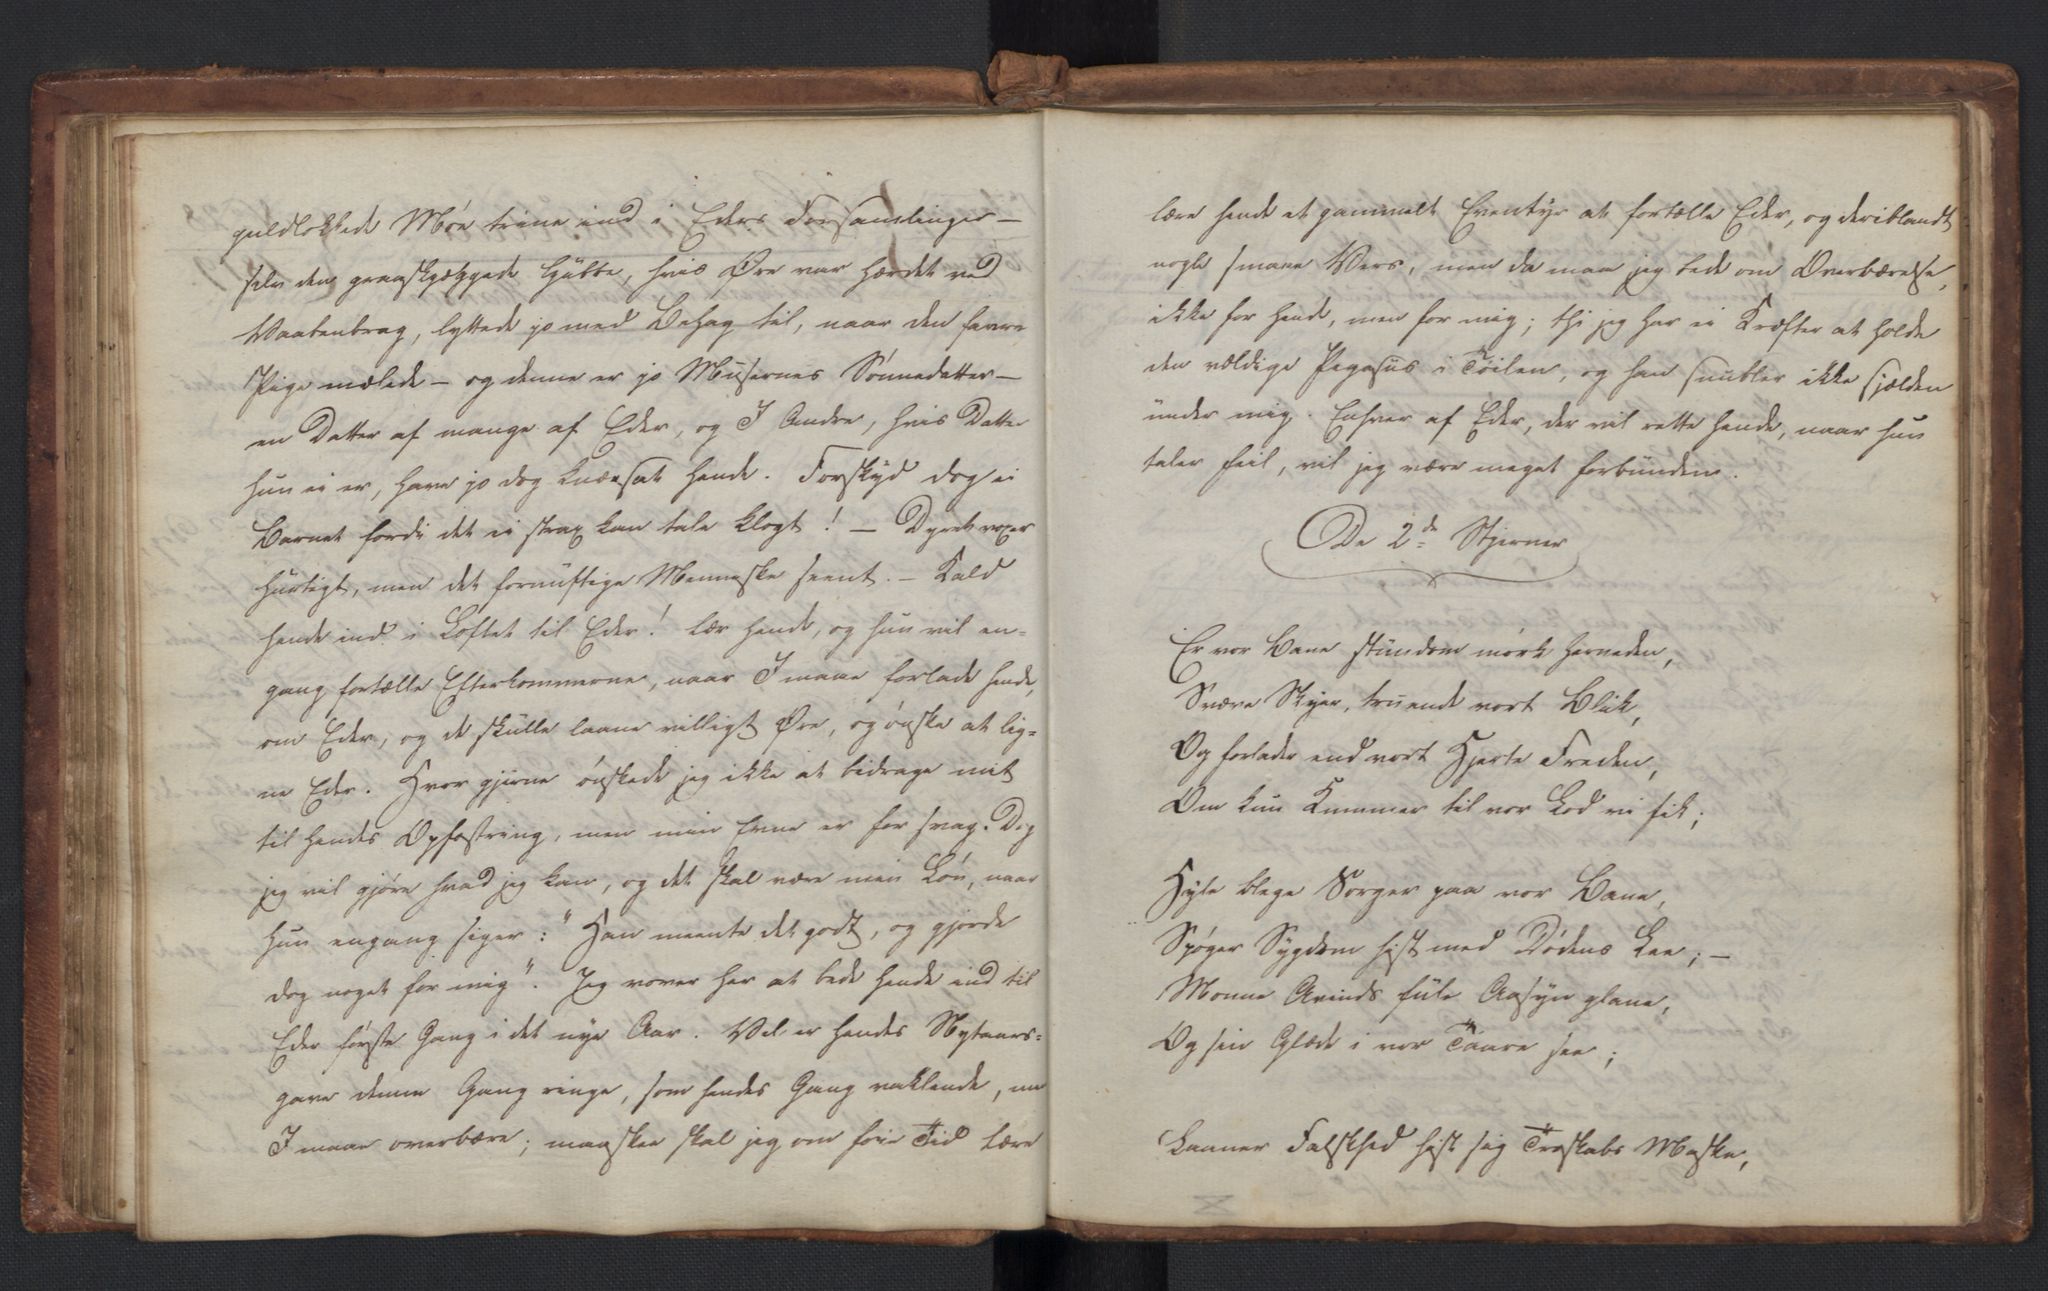 guldlokkede Møe trine ind i Eders Forsamlinger —
selv den graaskjæggede Gubbe, hvis Øre var hærdet ved
Vaabenbrag, lyttede jo med Behag til, naar den favre
Pige mælede — og denne er jo Musernes Sønnedatter —
en Datter af mange af Eder, og I Andre, hvis Datter
hun ei er, have jo dog knæesat hende. Forskyd dog ei
Barnet fordi det ei strax kan tale klogt! — Dyret voxer
hurtigt, men det fornuftige Menneske seent. — Kald
hende ind i Loftet til Eder! lær hende, og hun vil en=
gang fortælle Efterkommerne, naar I maae forlade hende,
om Eder, og de skulle laane villigt Øre, og ønske at lig=
ne Eder. Hvor gjerne ønskede jeg ikke at bidrage mit
til hendes Opfostring, men min Evne er for svag. Dog
jeg vil gjøre hvad jeg kan, og det skal være min Løn, naar
hun engang siger: "Han meente det godt, og gjorde
dog noget for mig". Jeg vover her at lede hende ind til
Eder første Gang i det nye Aar. Vel er hendes Nytaars=
gave denne Gang ringe, som hendes Gang vaklende, men
I maae overbære; maaskee skal jeg om føie Tid lære
lære hende et gammelt Eventyr at fortælle Eder, og deriblandt
nogle smaae Vers, men da maa jeg bede om Overbærelse,
ikke for hende, men for mig; thi jeg har ei Kræfter at holde
den vældige Pegasus i Tøilen, og han snubler ikke sjælden
under mig. Enhver af Eder, der vil rette hende, naar hun
taler feil, vil jeg være meget forbunden.
De 2de Stjerner
Er vor Bane stundom mørk herneden,
Svære Skyer, truende vort Blik,
Og forlader end vort Hjerte Freden,
Om kun Kummer til vor Lod vi fik;
Hyle blege Sorger paa vor Bane,
Spøger Sygdom hist med Dødens Lee; —
Monne Avinds fule Aasyn glane,
Og sin Glæde i vor Taare see;
Laaner Falskhed hist sig Troskabs Maske,